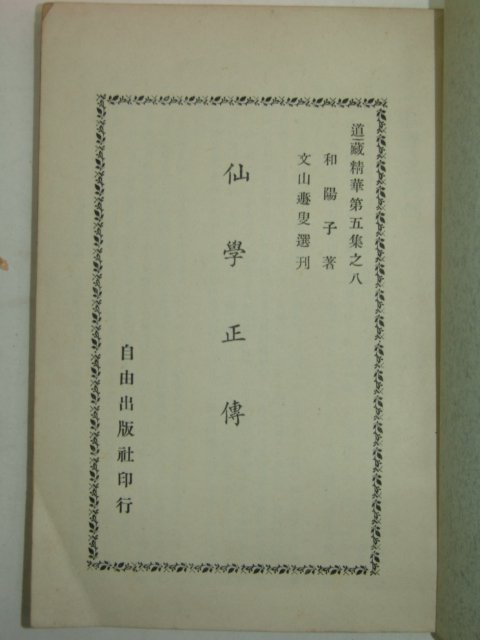 道藏精華第五集之八
和陽子著
文山遯叟選刊
仙學正傳
自由出版社印行